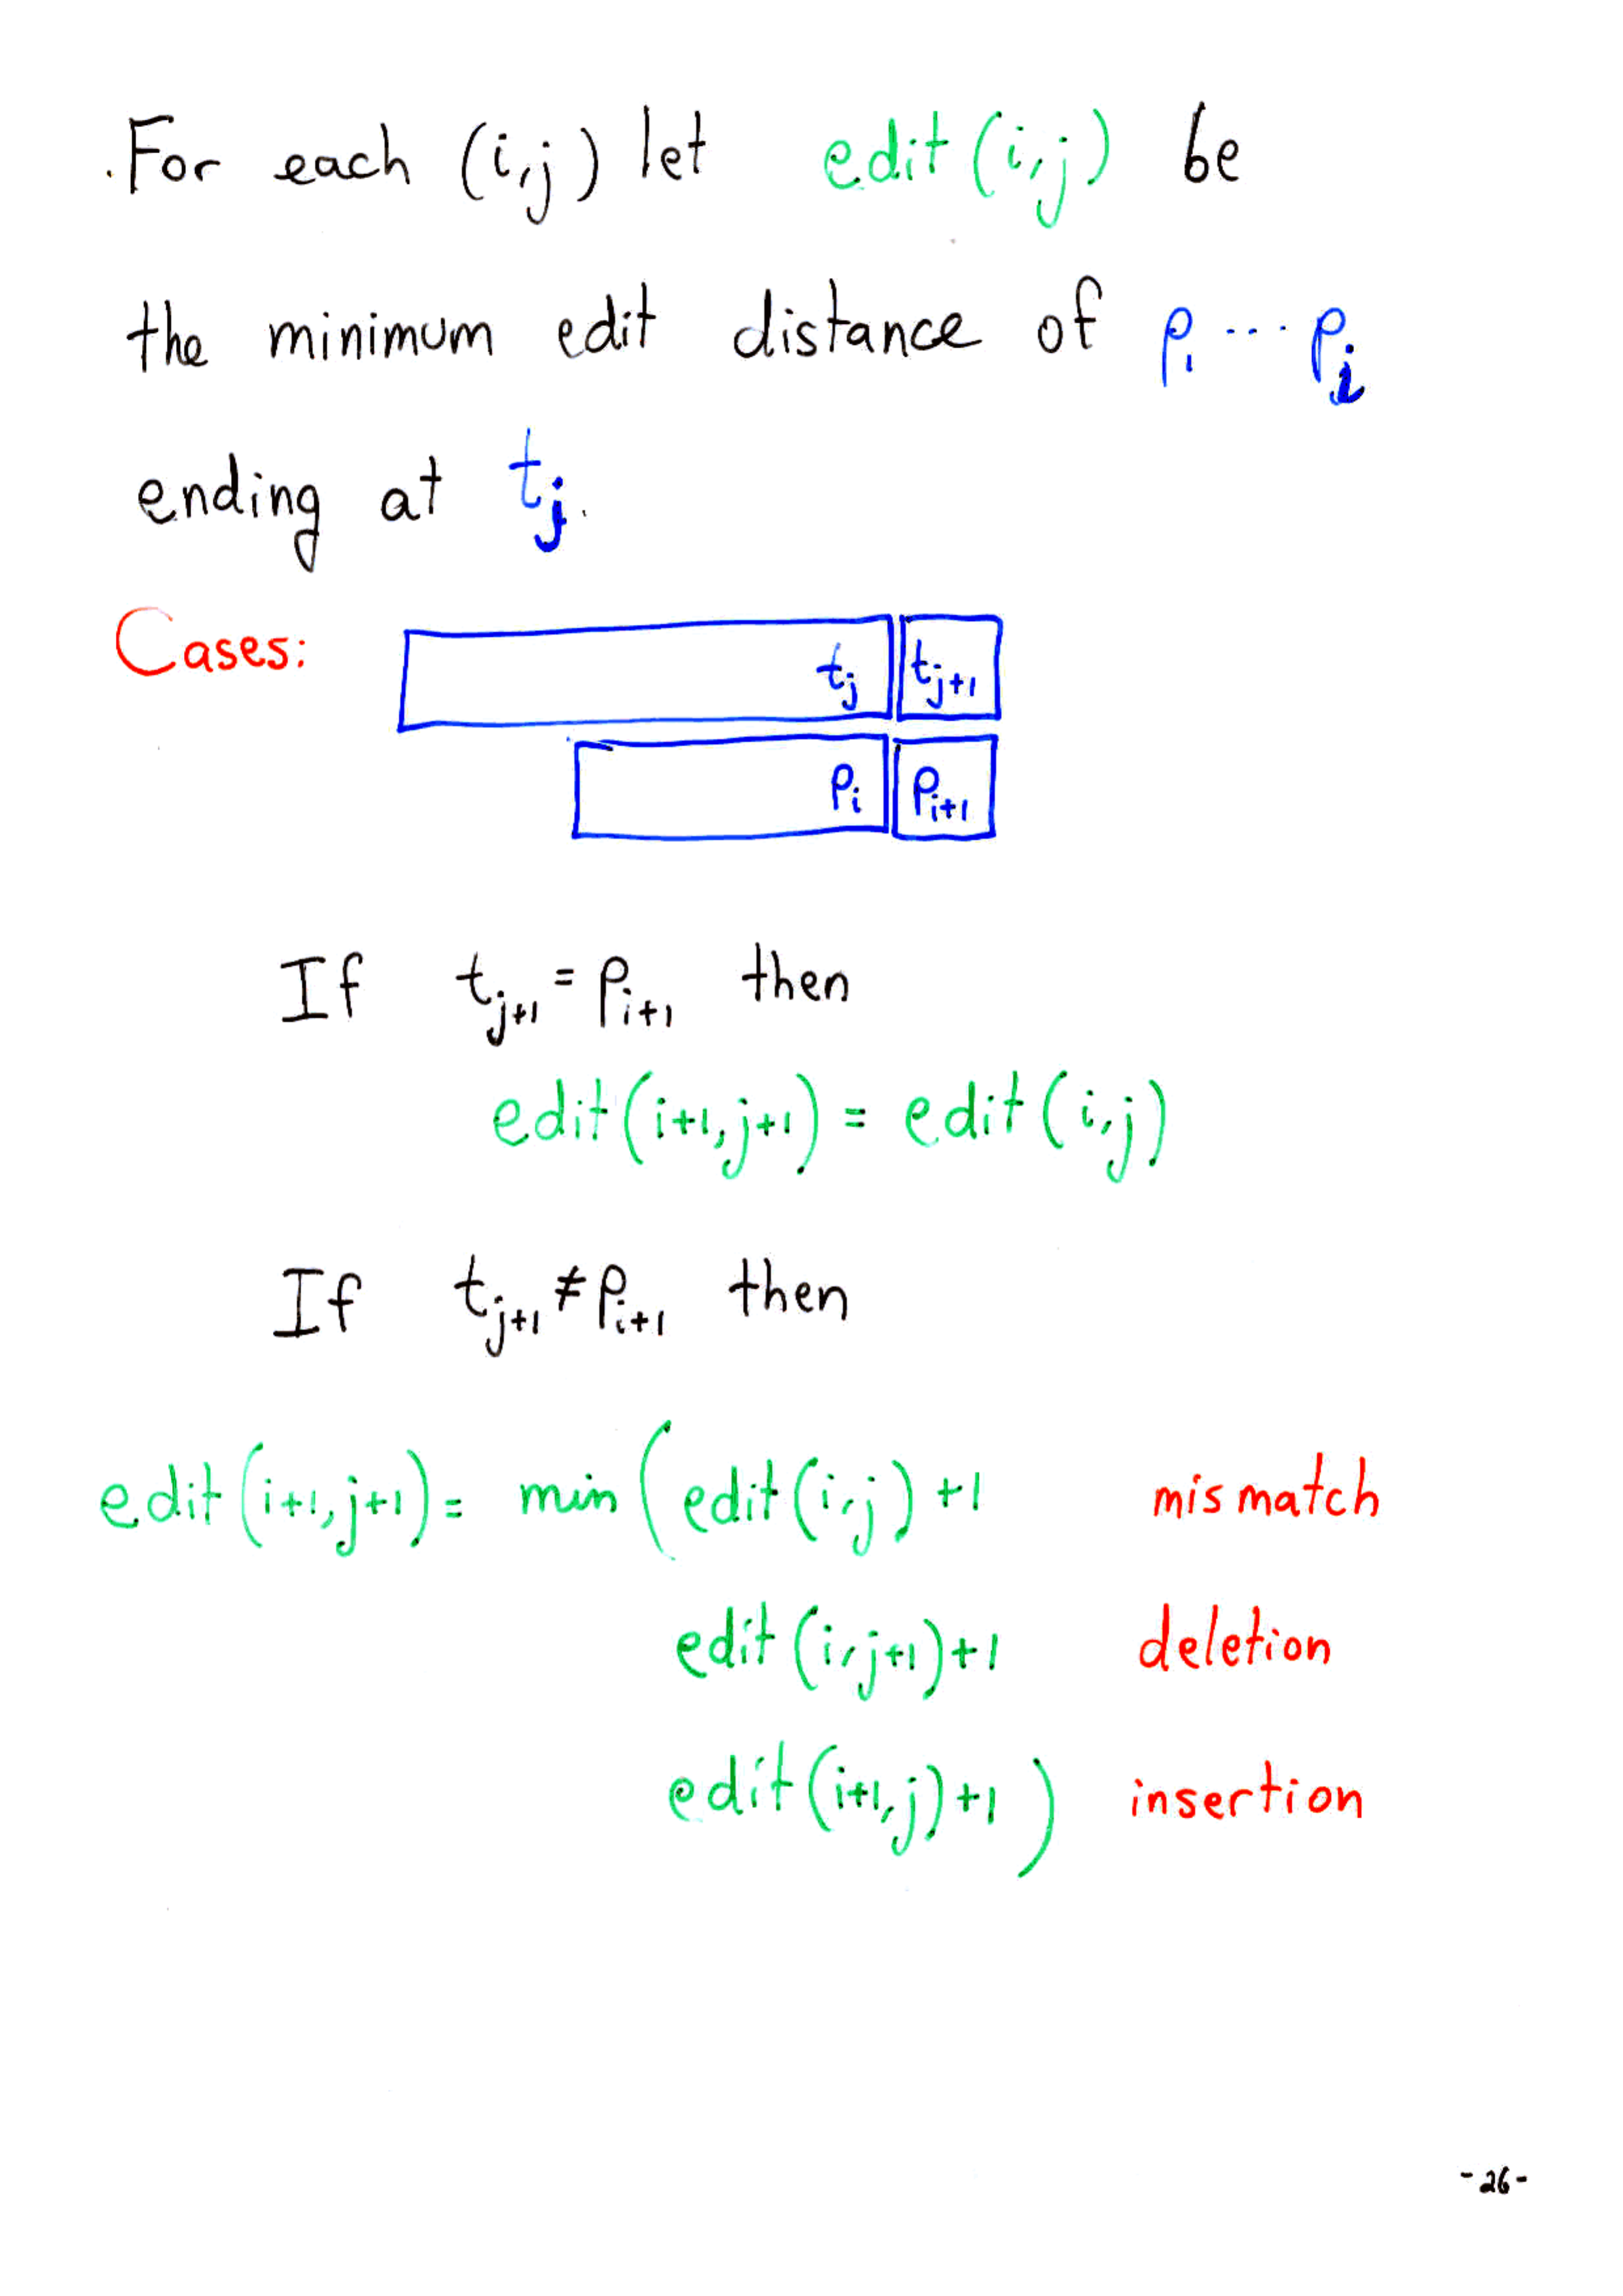 .For each (i,j) let edit(i,j) be
the minimum edit distance of p₁ ... pⱼ
ending at tⱼ.
Cases:
tⱼ tⱼ₊₁
pᵢ pᵢ₊₁
If tⱼ₊₁ = pᵢ₊₁ then
edit(i+1,j+1) = edit(i,j)
If tⱼ₊₁ ≠ pᵢ₊₁ then
edit(i+1,j+1) = min(edit(i,j)+1 mismatch
edit(i,j+1)+1 deletion
edit(i+1,j)+1) insertion
-26-